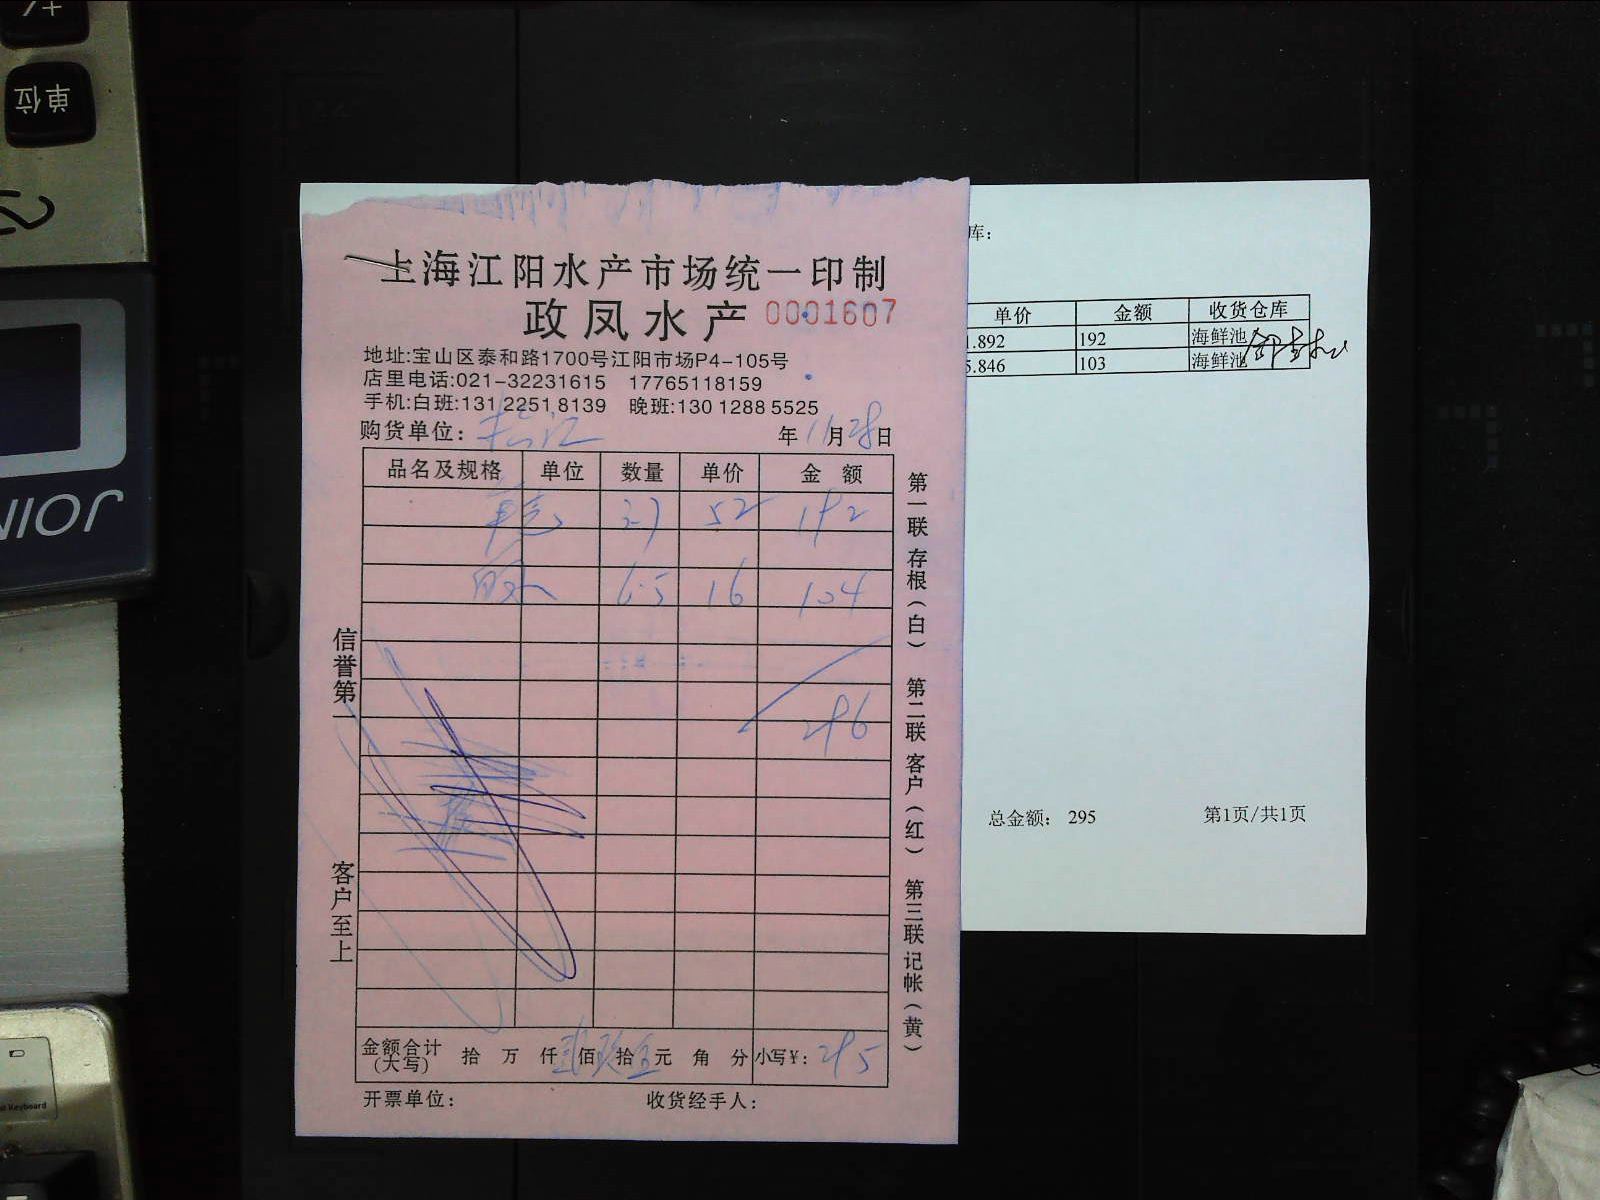 +/
单位
2
JOIN
上海江阳水产市场统一印制
政凤水产 0001607
地址:宝山区泰和路1700号江阳市场P4-105号
店里电话:021-32231615 17765118159
手机:白班:131 2251 8139 晚班:130 1288 5525
购货单位: 松江 年 11 月 28 日
品名及规格 单位 数量 单价 金额
52 192
6.5 16 104
296
金额合计(大写) 拾 万 仟 贰 佰 玖 拾 五 元 角 分 小写¥: 295
开票单位: 收货经手人:
信誉第一 客户至上
第一联 存根(白) 第二联 客户(红) 第三联 记帐(黄)
库:
单价 金额 收货仓库
.892 192 海鲜池
5.846 103 海鲜池
总金额: 295 第1页/共1页
Keyboard